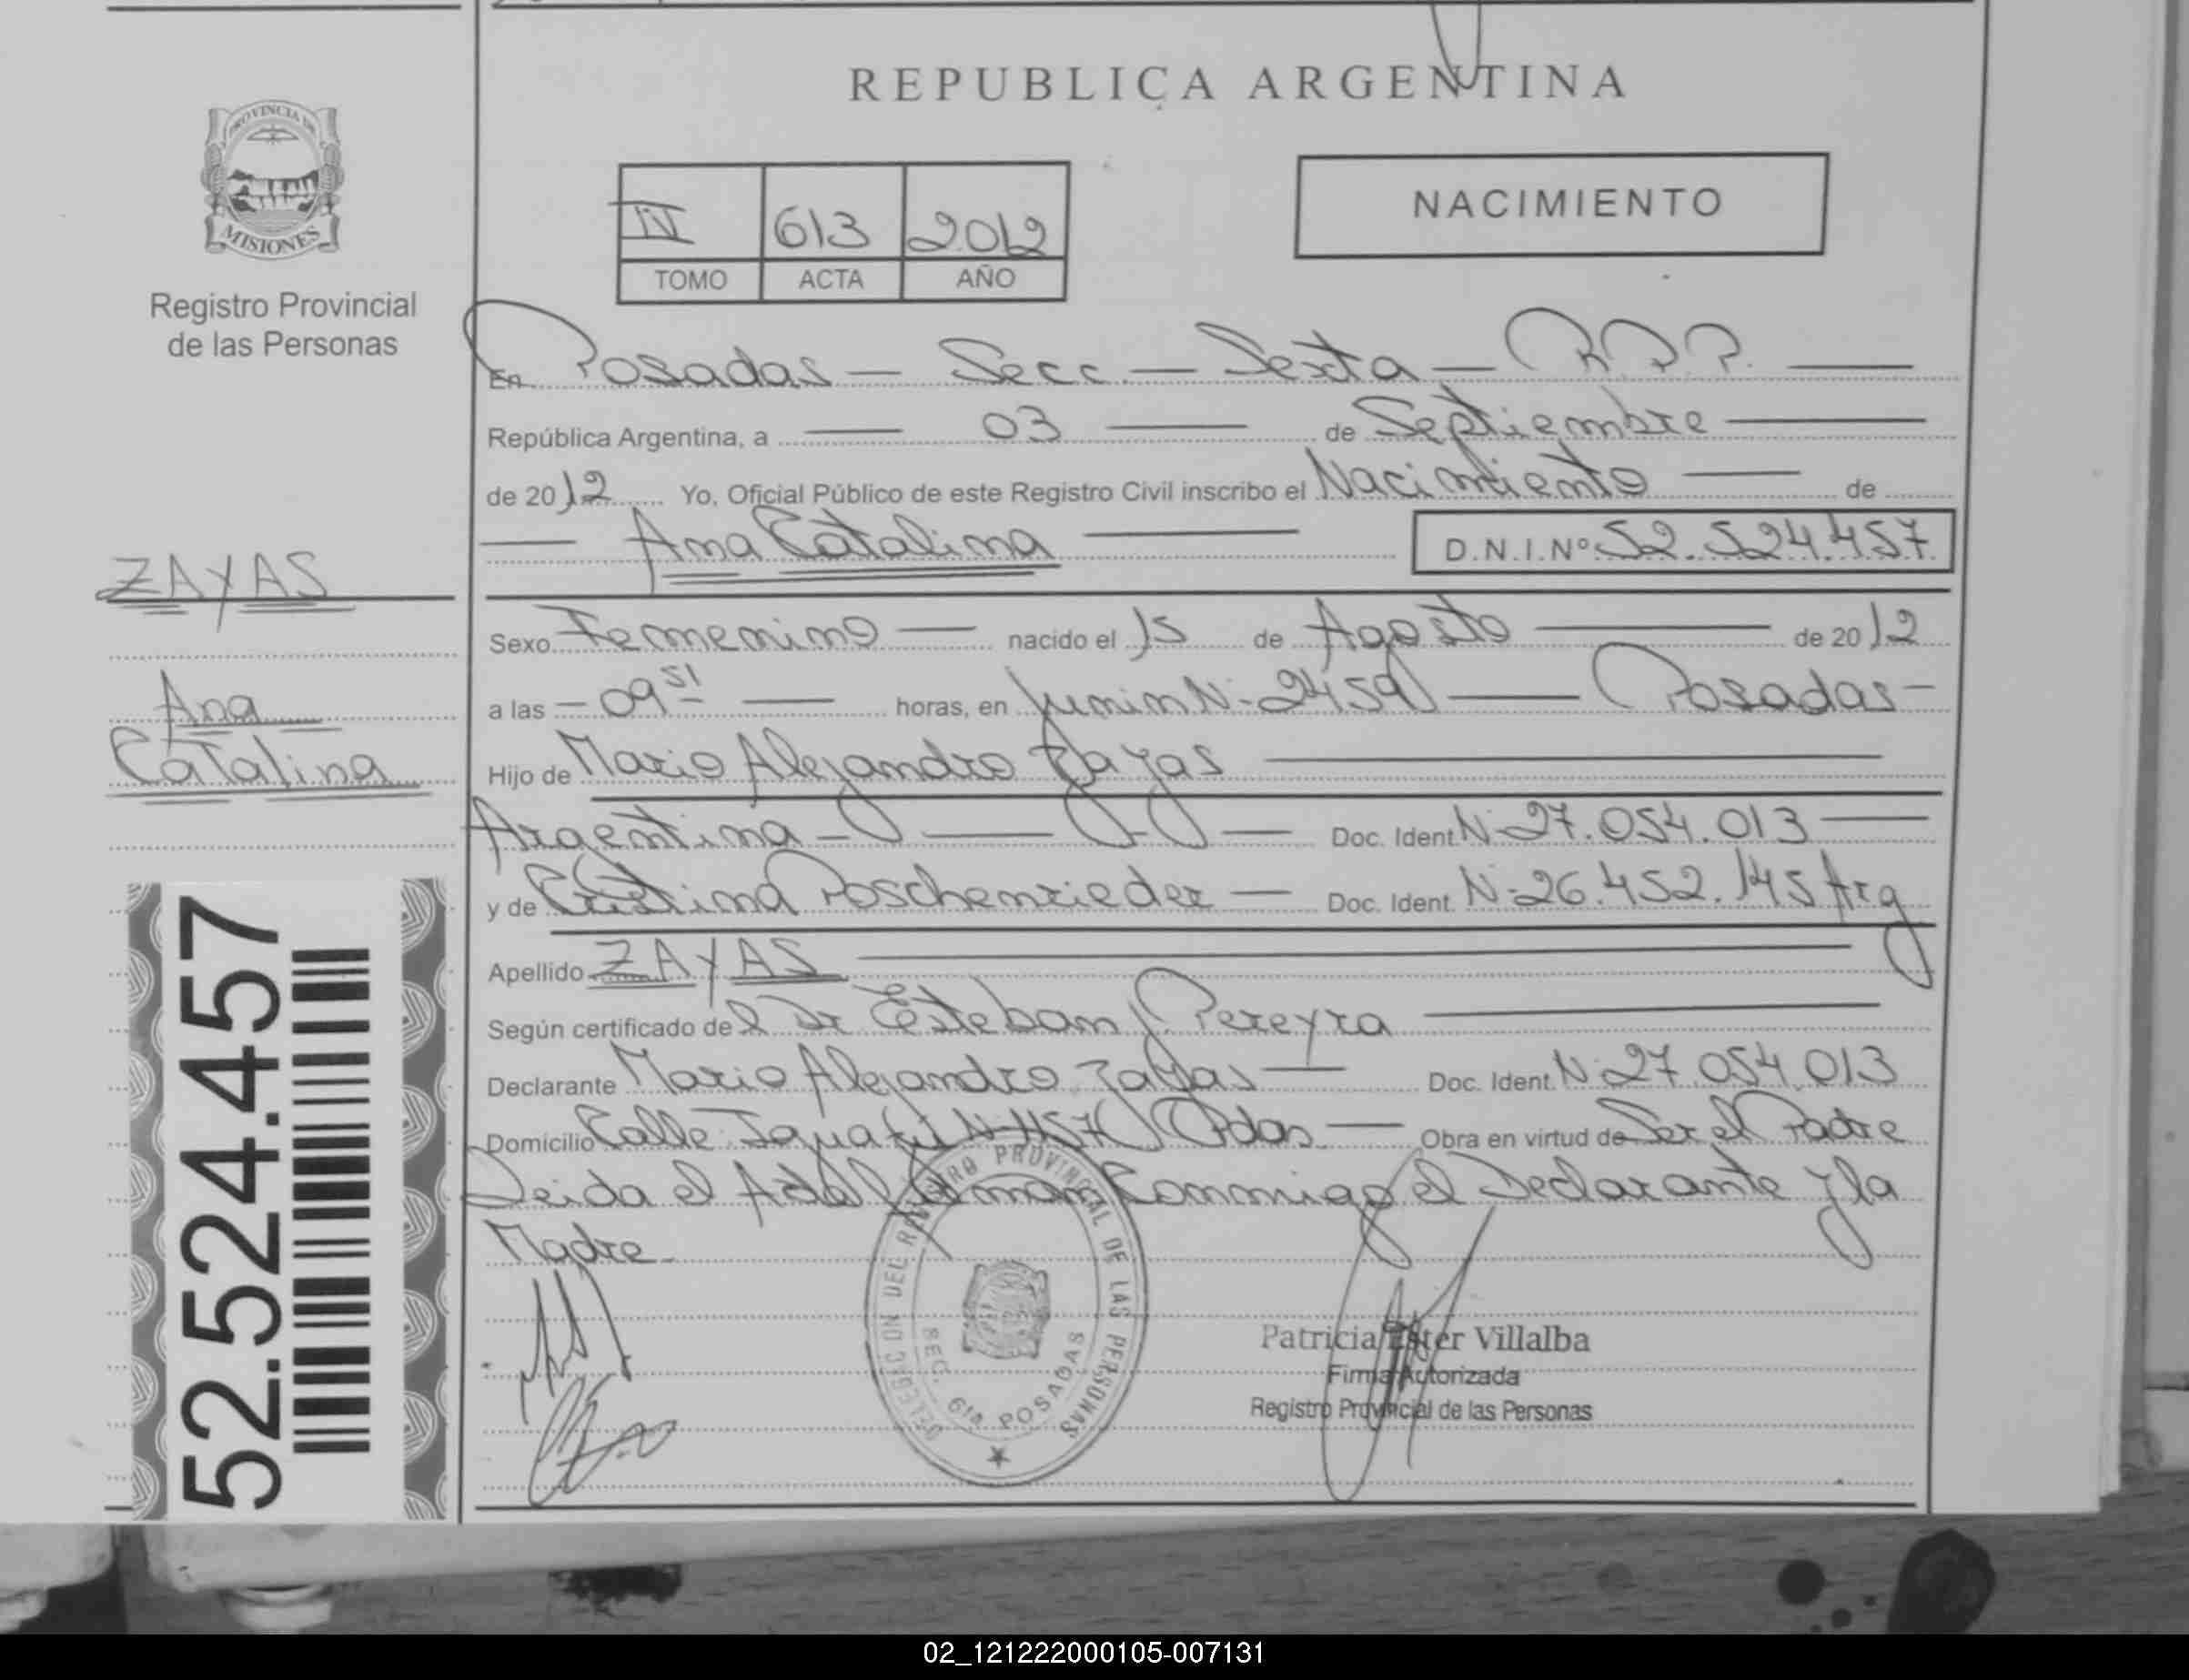 REPUBLICA ARGENTINA
PROVINCIA DE
MISIONES
Registro Provincial
de las Personas
IV 613 2012
TOMO ACTA AÑO
NACIMIENTO
En Posadas — Secc. — Sexta — R.P.P. —
República Argentina, a — 03 — de Septiembre —
de 2012 Yo, Oficial Público de este Registro Civil inscribo el Nacimiento — de
— Ana Catalina — D.N.I.Nº 52.524.457
ZAYAS
Ana
Catalina
Sexo Femenino — nacido el 15 de Agosto — de 2012
a las — 09 51 — horas, en Junin Nº 2459 — Posadas —
Hijo de Mario Alejandro Zayas —
Argentina — Doc. Ident. Nº 27.054.013 —
y de Cristina Poschenrieder — Doc. Ident. Nº 26.452.145 Arg
Apellido ZAYAS —
Según certificado del Dr Esteban Pereyra —
Declarante Mario Alejandro Zayas — Doc. Ident. Nº 27.054.013
Domicilio Calle Pdas — Obra en virtud de Ser el Padre
Leida el Acta Conmigo el Declarante y la
Madre
52.524.457
DELEGACION DEL REGISTRO PROVINCIAL DE LAS PERSONAS
SEC. 6ta POSADAS
Patricia Ester Villalba
Firma Autorizada
Registro Provincial de las Personas
02_121222000105-007131